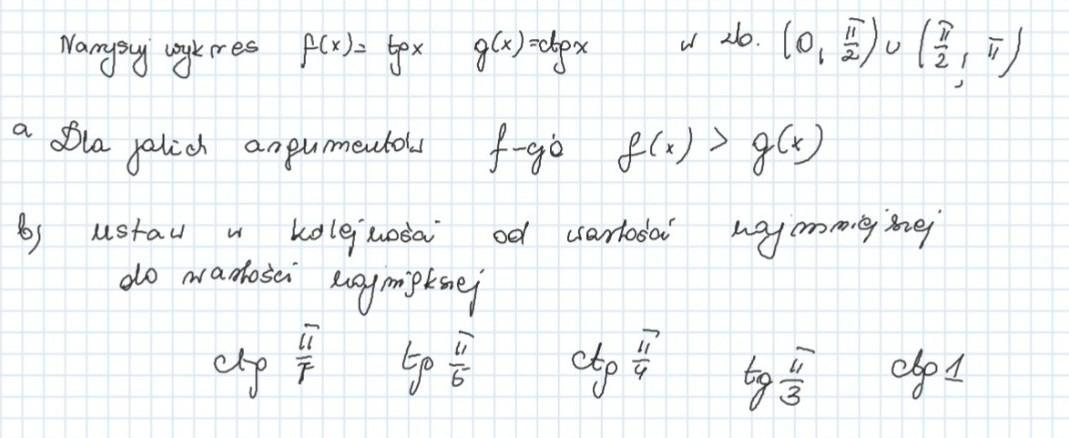 Narysuj wykres f(x)= tgx g(x)=ctgx w zb. (0, π/2) ∪ (π/2, π)
a Dla jakich argumentów f-cja f(x) > g(x)
b) ustaw w kolejności od wartości najmniejszej
do wartości największej
ctg π/7 tg π/6 ctg π/4 tg π/3 ctg 1